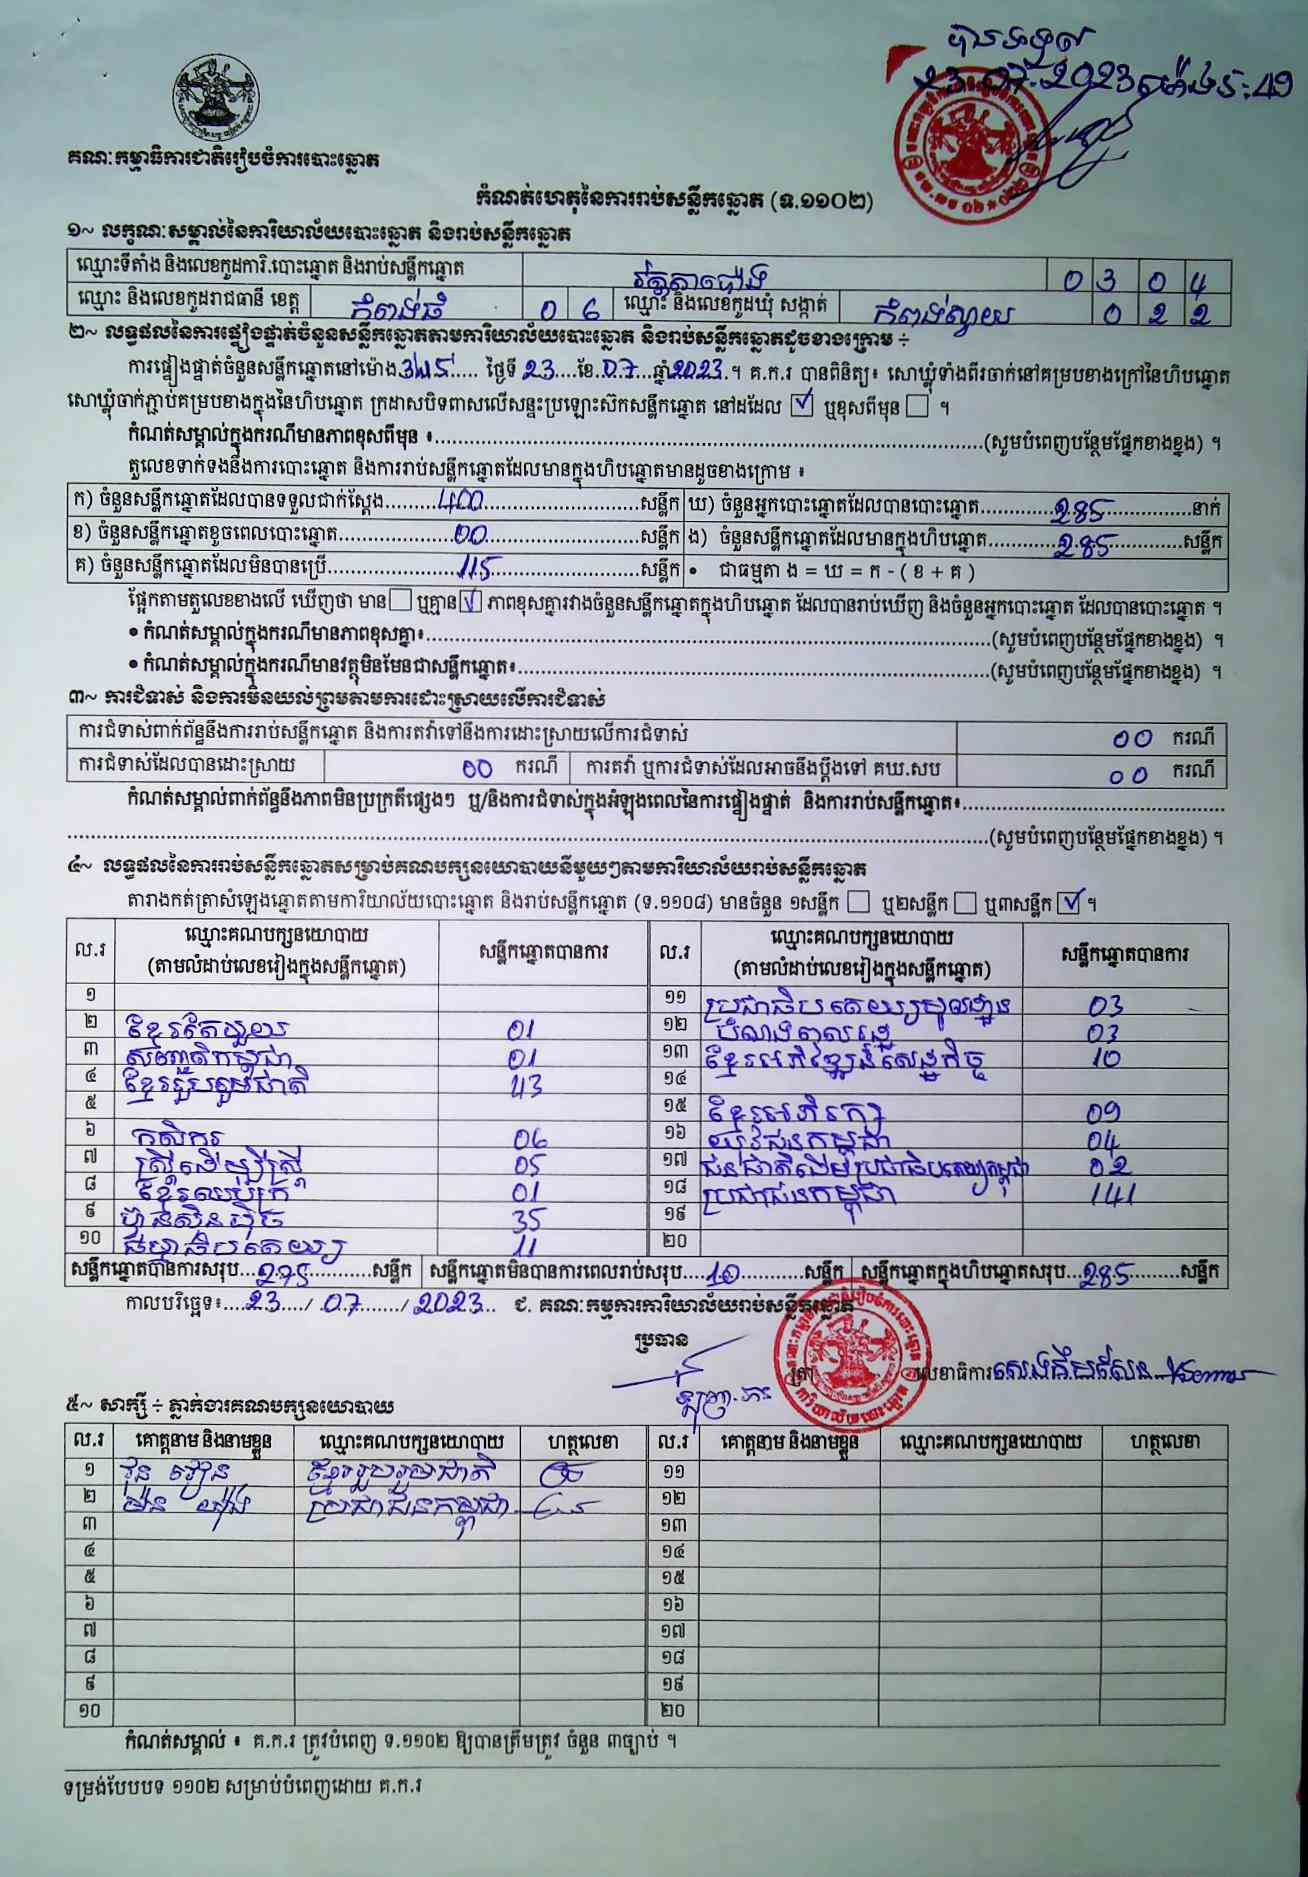 បានទទួល
23.07.2023
គណៈកម្មាធិការជាតិរៀបចំការបោះឆ្នោត
កំណត់ហេតុនៃការរាប់សន្លឹកឆ្នោត (ទ.១១០២)
១~ លក្ខណៈសម្គាល់នៃការិយាល័យបោះឆ្នោត និងរាប់សន្លឹកឆ្នោត
ឈ្មោះទីតាំង និងលេខកូដការិ.បោះឆ្នោត និងរាប់សន្លឹកឆ្នោត 0 3 0 4
ឈ្មោះ និងលេខកូដរាជធានី ខេត្ត កំពង់ធំ 0 6 ឈ្មោះ និងលេខកូដឃុំ សង្កាត់ កំពង់ស្វាយ 0 2 2
២~ លទ្ធផលនៃការផ្ទៀងផ្ទាត់ចំនួនសន្លឹកឆ្នោតតាមការិយាល័យបោះឆ្នោត និងរាប់សន្លឹកឆ្នោតដូចខាងក្រោម ÷
ការផ្ទៀងផ្ទាត់ចំនួនសន្លឹកឆ្នោតនៅម៉ោង..... ថ្ងៃទី 23....ខែ.07......ឆ្នាំ2023.។ គ.ក.រ បានពិនិត្យ៖ សោឃ្លុំទាំងពីរចាក់នៅគម្របខាងក្រៅនៃហិបឆ្នោត
សោឃ្លុំចាក់ភ្ជាប់គម្របខាងក្នុងនៃហិបឆ្នោត ក្រដាសបិទពាសលើសន្ទះប្រឡោះស៊កសន្លឹកឆ្នោត នៅដដែល ☑ ឬខុសពីមុន ☐ ។
កំណត់សម្គាល់ក្នុងករណីមានភាពខុសពីមុន ៖......(សូមបំពេញបន្ថែមផ្នែកខាងខ្នង) ។
តួលេខទាក់ទងនឹងការបោះឆ្នោត និងការរាប់សន្លឹកឆ្នោតដែលមានក្នុងហិបឆ្នោតមានដូចខាងក្រោម ៖
ក) ចំនួនសន្លឹកឆ្នោតដែលបានទទួលជាក់ស្តែង.........400.........សន្លឹក ឃ) ចំនួនអ្នកបោះឆ្នោតដែលបានបោះឆ្នោត.........285.........នាក់
ខ) ចំនួនសន្លឹកឆ្នោតខូចពេលបោះឆ្នោត.........00.........សន្លឹក ង) ចំនួនសន្លឹកឆ្នោតដែលមានក្នុងហិបឆ្នោត.........285.........សន្លឹក
គ) ចំនួនសន្លឹកឆ្នោតដែលមិនបានប្រើ.........115.........សន្លឹក • ជាធម្មតា ង = ឃ = ក - ( ខ + គ )
ផ្អែកតាមតួលេខខាងលើ ឃើញថា មាន☐ ឬគ្មាន☑ ភាពខុសគ្នារវាងចំនួនសន្លឹកឆ្នោតក្នុងហិបឆ្នោត ដែលបានរាប់ឃើញ និងចំនួនអ្នកបោះឆ្នោត ដែលបានបោះឆ្នោត ។
• កំណត់សម្គាល់ក្នុងករណីមានភាពខុសគ្នា៖......(សូមបំពេញបន្ថែមផ្នែកខាងខ្នង) ។
• កំណត់សម្គាល់ក្នុងករណីមានវត្ថុមិនមែនជាសន្លឹកឆ្នោត៖......(សូមបំពេញបន្ថែមផ្នែកខាងខ្នង) ។
៣~ ការជំទាស់ និងការមិនយល់ព្រមតាមការដោះស្រាយលើការជំទាស់
ការជំទាស់ពាក់ព័ន្ធនឹងការរាប់សន្លឹកឆ្នោត និងការតវ៉ាទៅនឹងការដោះស្រាយលើការជំទាស់ 00 ករណី
ការជំទាស់ដែលបានដោះស្រាយ 00 ករណី ការតវ៉ា ឬការជំទាស់ដែលអាចនឹងប្តឹងទៅ គឃ.សប 00 ករណី
កំណត់សម្គាល់ពាក់ព័ន្ធនឹងភាពមិនប្រក្រតីផ្សេងៗ ឬ/និងការជំទាស់ក្នុងអំឡុងពេលនៃការផ្ទៀងផ្ទាត់ និងការរាប់សន្លឹកឆ្នោត៖......
......(សូមបំពេញបន្ថែមផ្នែកខាងខ្នង) ។
៤~ លទ្ធផលនៃការរាប់សន្លឹកឆ្នោតសម្រាប់គណបក្សនយោបាយនីមួយៗតាមការិយាល័យរាប់សន្លឹកឆ្នោត
តារាងកត់ត្រាសំឡេងឆ្នោតតាមការិយាល័យបោះឆ្នោត និងរាប់សន្លឹកឆ្នោត (ទ.១១០៨) មានចំនួន ១សន្លឹក ☐ ឬ២សន្លឹក ☐ ឬ៣សន្លឹក ☑ ។
ល.រ ឈ្មោះគណបក្សនយោបាយ (តាមលំដាប់លេខរៀងក្នុងសន្លឹកឆ្នោត) សន្លឹកឆ្នោតបានការ ល.រ ឈ្មោះគណបក្សនយោបាយ (តាមលំដាប់លេខរៀងក្នុងសន្លឹកឆ្នោត) សន្លឹកឆ្នោតបានការ
១ ១១ ប្រជាធិបតេយ្យមូលដ្ឋាន 03
២ ខ្មែរតែមួយ 01 ១២ 03
៣ សញ្ជាតិកម្ពុជា 01 ១៣ ខ្មែរអភិវឌ្ឍន៍សេដ្ឋកិច្ច 10
៤ ខ្មែររួបរួមជាតិ 43 ១៤
៥ ១៥ ខ្មែរអភិរក្ស 09
៦ កសិករ 06 ១៦ យុវជនកម្ពុជា 04
៧ ស្ត្រីដើម្បីស្ត្រី 05 ១៧ ជនជាតិដើមប្រជាធិបតេយ្យកម្ពុជា 02
៨ ខ្មែរឈប់ក្រ 01 ១៨ ប្រជាជនកម្ពុជា 141
៩ ហ្វ៊ុនស៊ិនប៉ិច 35 ១៩
១០ ធម្មាធិបតេយ្យ 11 ២០
សន្លឹកឆ្នោតបានការសរុប...275......សន្លឹក សន្លឹកឆ្នោតមិនបានការពេលរាប់សរុប....10......សន្លឹក សន្លឹកឆ្នោតក្នុងហិបឆ្នោតសរុប...285......សន្លឹក
កាលបរិច្ឆេទ៖....23..../ .07....../ 2023... ជ. គណៈកម្មការការិយាល័យរាប់សន្លឹកឆ្នោត
ប្រធាន
ត្រា លេខាធិការ
៥~ សាក្សី ÷ ភ្នាក់ងារគណបក្សនយោបាយ
ល.រ គោត្តនាម និងនាមខ្លួន ឈ្មោះគណបក្សនយោបាយ ហត្ថលេខា ល.រ គោត្តនាម និងនាមខ្លួន ឈ្មោះគណបក្សនយោបាយ ហត្ថលេខា
១ ខ្មែររួបរួមជាតិ ១១
២ ប្រជាជនកម្ពុជា ១២
៣ ១៣
៤ ១៤
៥ ១៥
៦ ១៦
៧ ១៧
៨ ១៨
៩ ១៩
១០ ២០
កំណត់សម្គាល់ ៖ គ.ក.រ ត្រូវបំពេញ ទ.១១០២ ឱ្យបានត្រឹមត្រូវ ចំនួន ៣ច្បាប់ ។
ទម្រង់បែបបទ ១១០២ សម្រាប់បំពេញដោយ គ.ក.រ